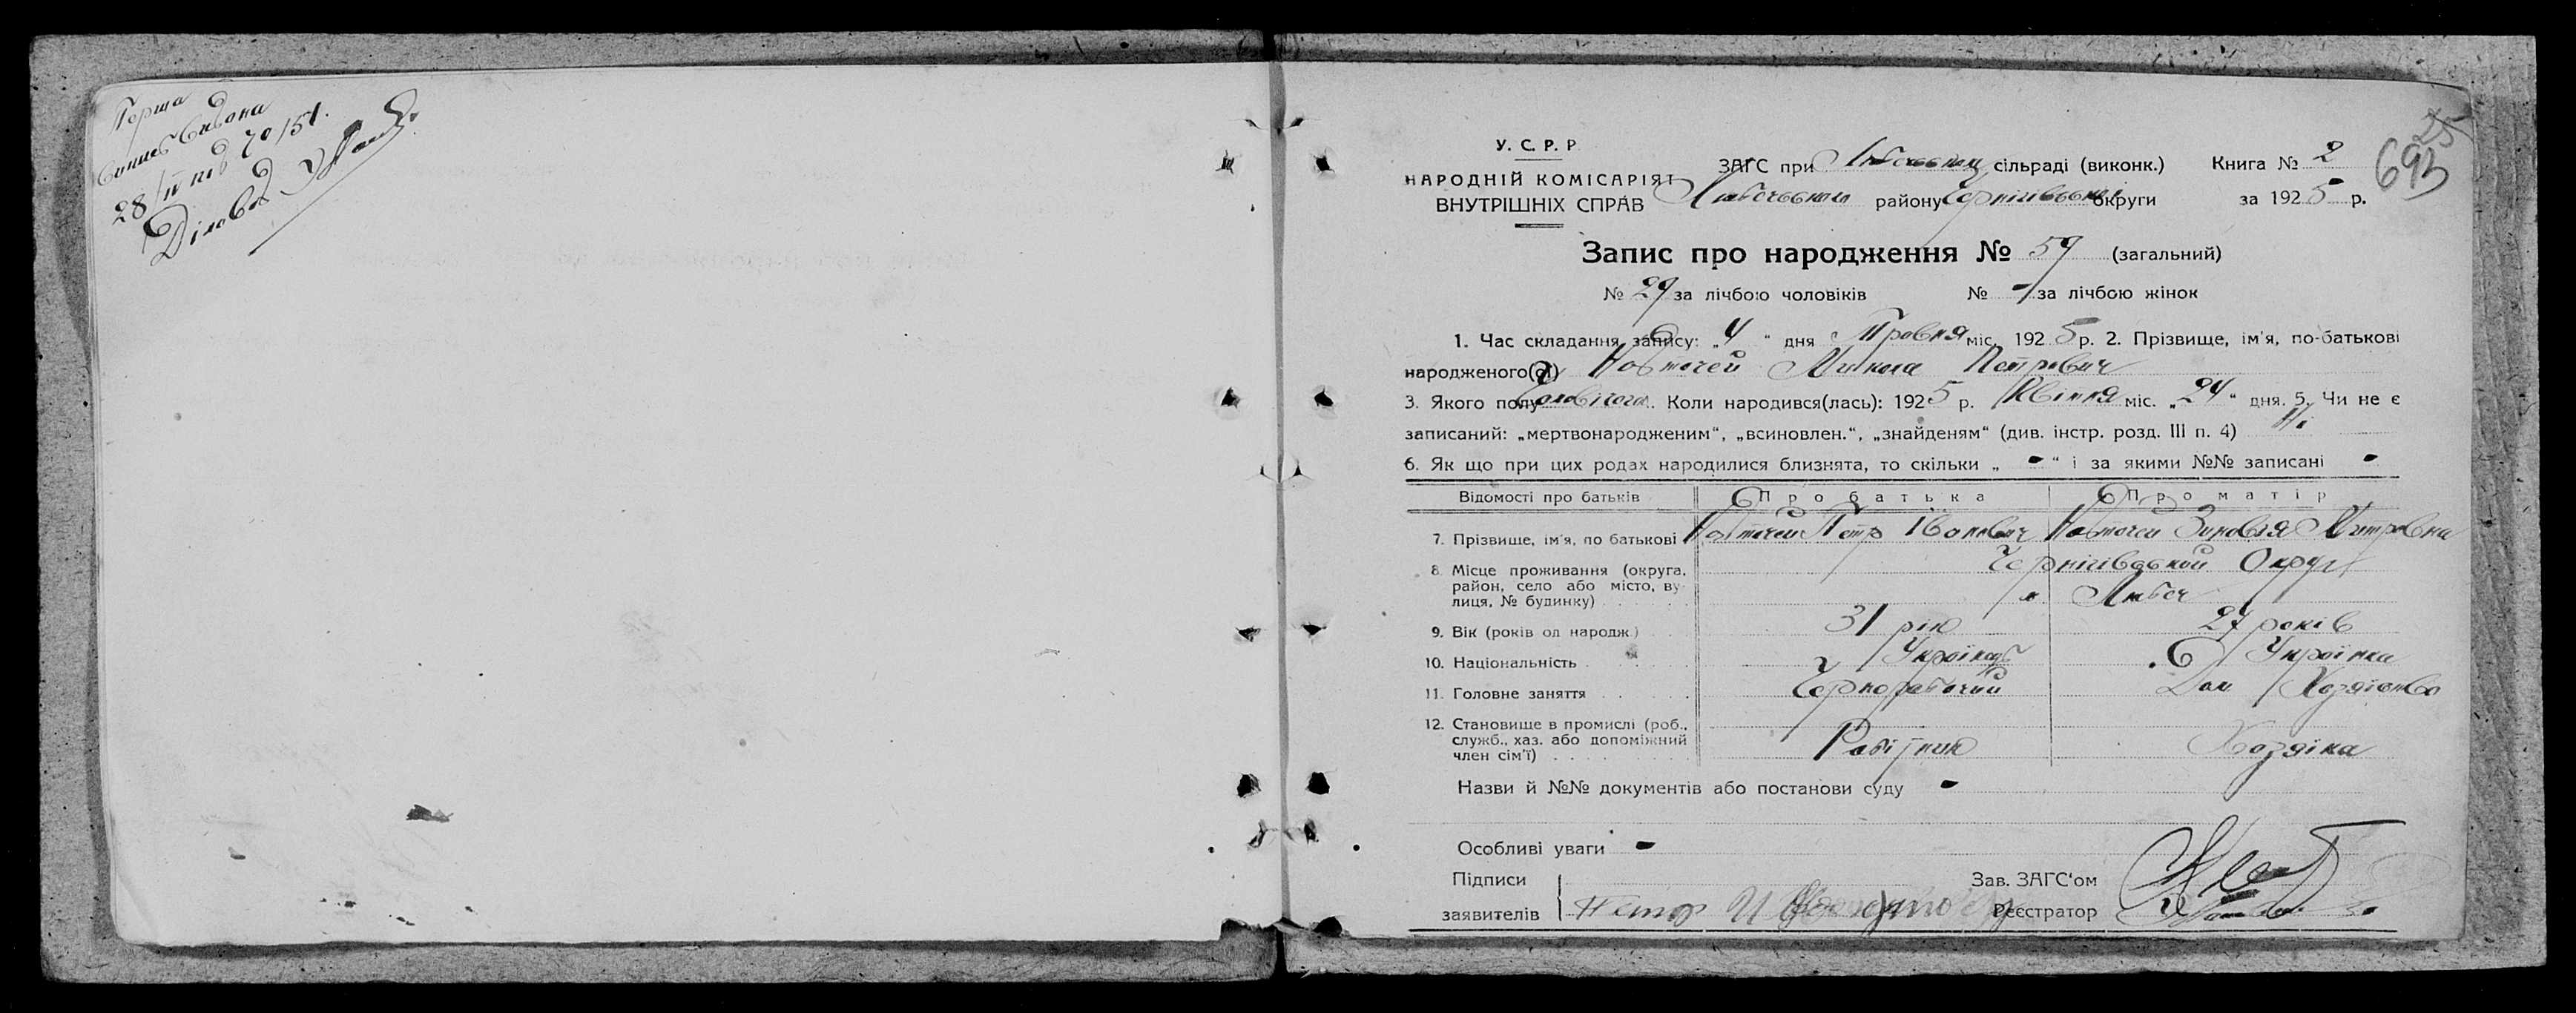 Перша
28/IV під 70/51.
Діловод
25
693
У. С. Р. Р
НАРОДНІЙ КОМІСАРІЯТ
ВНУТРІШНІХ СПРАВ
ЗАГС при Любецькому сільраді (виконк.) Книга № 2
Любецького району Чернігівської округи за 1925 р.
Запис про народження № 59 (загальний)
№ 29 за лічбою чоловіків № - за лічбою жінок
1. Час складання запису: „4“ дня Травня міс. 1925 р. 2. Прізвище, ім'я, по-батькові
народженого(ої) Микола Петрович
3. Якого полу Коли народився(лась): 1925 р. Квітня міс. „24“ дня. 5. Чи не є
записаний: „мертвонародженим“, „всиновлен.“, „знайденям“ (див. інстр. розд. III п. 4) Ні
6. Як що при цих родах народилися близнята, то скільки „-“ і за якими №№ записані -
Відомості про батьків Про батька Про матір
7. Прізвище, ім'я, по батькові Петр Іванович Зиновія Митровна
8. Місце проживання (округа, район, село або місто, вулиця, № будинку) Чернігівської Округи
м Любеч
9. Вік (років од народж.) 31 рік 27 років
10. Національність Українець Українка
11. Головне заняття Чорнорабочий Дом Хозяїство
12. Становище в промислі (роб., служб., хаз. або допоміжний член сім'ї) Робітник Хозяїка
Назви й №№ документів або постанови суду -
Особливі уваги -
Підписи
заявителів Петр И
Зав. ЗАГС'ом
Реєстратор